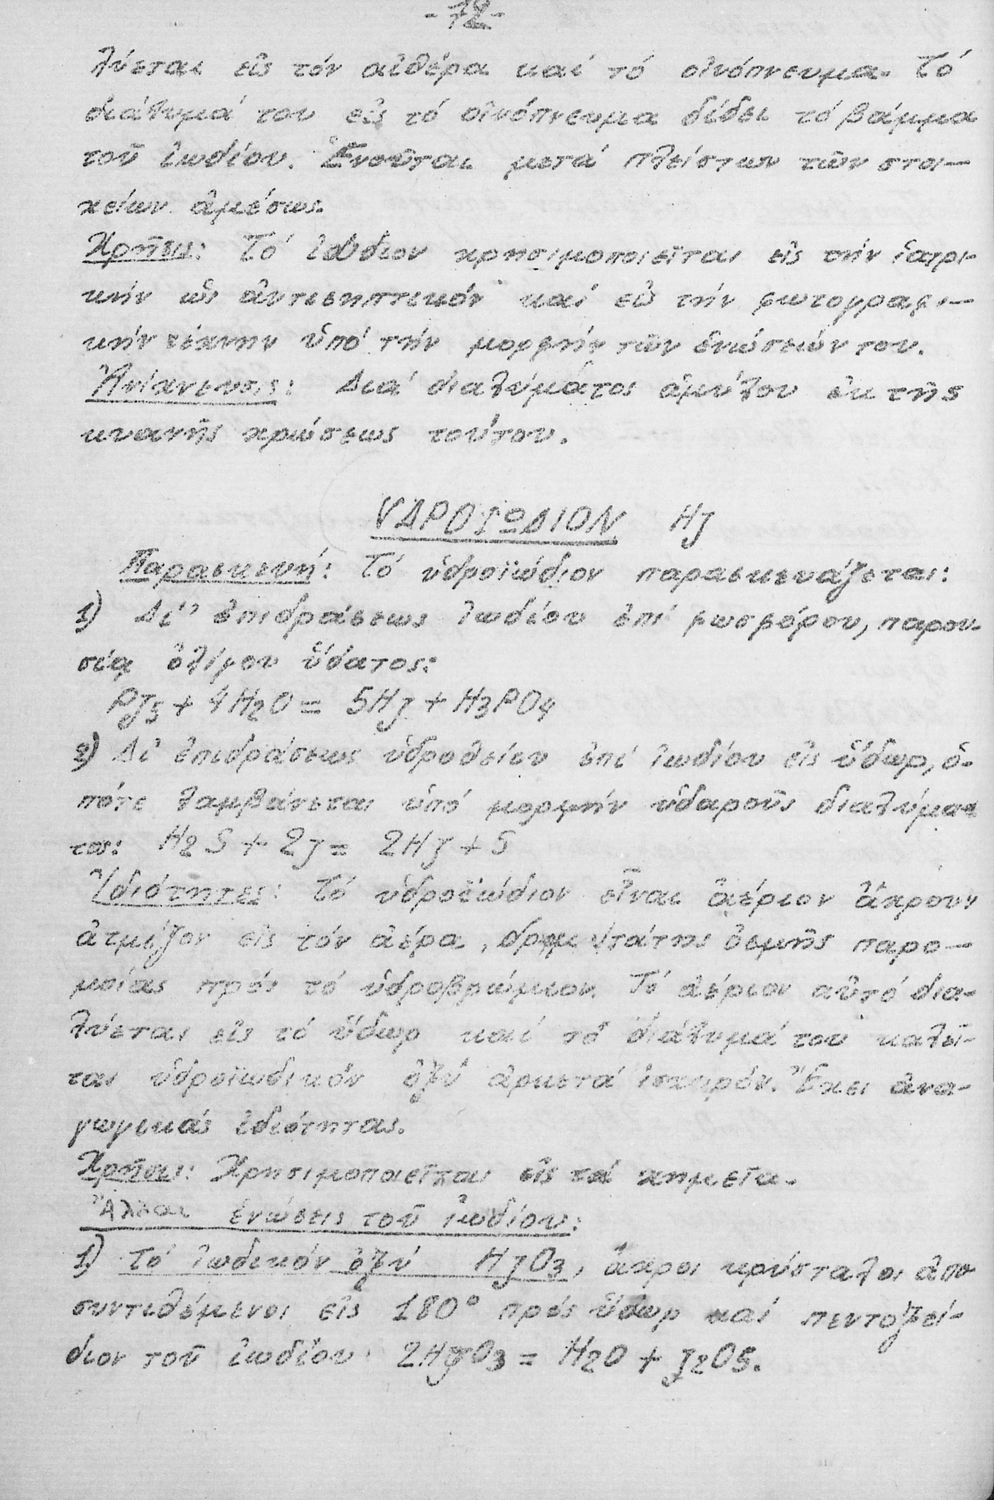 -72-
λύεται εἰς τόν αἰθέρα καί τό οἰνόπνευμα. Τό
διάλυμά του εἰς τό οἰνόπνευμα δίδει τό βάμμα
τοῦ ἰωδίου. Ἑνοῦται μετά πλείστων τῶν στοι-
χείων ἀμέσως.
Χρῆσις: Τό ἰώδιον χρησιμοποιεῖται εἰς τήν ἰατρι-
κήν ὡς ἀντισηπτικόν καί εἰς τήν φωτογραφι-
κήν τέχνην ὑπό τήν μορφήν τῶν ἑνώσεών του.
Ἀνίχνευσις: Διά διαλύματος ἀμύλου ἐκ τῆς
κυανῆς χρώσεως τούτου.
ΥΔΡΟΪΩΔΙΟΝ HJ
Παρασκευή: Τό ὑδροϊώδιον παρασκευάζεται:
1) Δι' ἐπιδράσεως ἰωδίου ἐπί φωσφόρου, παρου-
σίᾳ ὀλίγου ὕδατος:
PJ5 + 4H2O = 5HJ + H3PO4
2) Δι' ἐπιδράσεως ὑδροθείου ἐπί ἰωδίου εἰς ὕδωρ, ὁ-
πότε λαμβάνεται ὑπό μορφήν ὑδαροῦς διαλύμα-
τος: H2S + 2J = 2HJ + S
Ἰδιότητες: Τό ὑδροϊώδιον εἶναι ἀέριον ἄχρουν
ἀτμίζον εἰς τόν ἀέρα, δριμυτάτης ὀσμῆς παρο-
μοίας πρός τό ὑδροβρώμιον. Τό ἀέριον αὐτό δια-
λύεται εἰς τό ὕδωρ καί τό διάλυμά του καλεῖ-
ται ὑδροϊωδικόν ὀξύ ἀρκετά ἰσχυρόν. Ἔχει ἀνα-
γωγικάς ἰδιότητας.
Χρῆσις: Χρησιμοποιεῖται εἰς τά χημεῖα.
Ἄλλαι ἑνώσεις τοῦ ἰωδίου:
1) Τό ἰωδικόν ὀξύ HJO3, ἄχροι κρύσταλοι ἀπο
συντιθέμενοι εἰς 180° πρός ὕδωρ καί πεντοξεί-
διον τοῦ ἰωδίου 2HJO3 = H2O + J2O5.